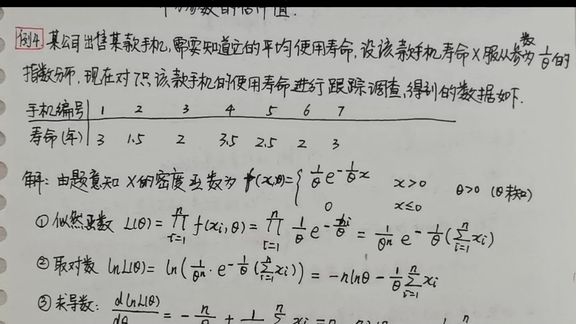 个参数的估计值.
例4. 某公司出售某款手机,需要知道它的平均使用寿命,设该款手机寿命X服从参数为1/θ的
指数分布,现在对7只该款手机的使用寿命进行跟踪调查,得到的数据如下.
手机编号 1 2 3 4 5 6 7
寿命(年) 3 1.5 2 3.5 2.5 2 3
解:由题意知X的密度函数为 f(x,θ)={ 1/θ e^{-1/θ x} x>0 θ>0 (θ未知)
0 x≤0
①似然函数 L(θ)=∏_{i=1}^{n} f(xi,θ)=∏_{i=1}^{n} 1/θ e^{-xi/θ} = 1/θ^n e^{-1/θ(∑_{i=1}^{n} xi)}
②取对数 lnL(θ)= ln(1/θ^n · e^{-1/θ(∑_{i=1}^{n} xi)}) = -nlnθ - 1/θ ∑_{i=1}^{n} xi
③求导数: dlnL(θ)/dθ = - n/θ + 1